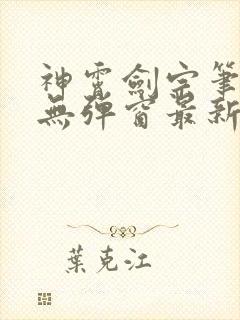 神霄劍宗筆
無彈窗最新
葉克江